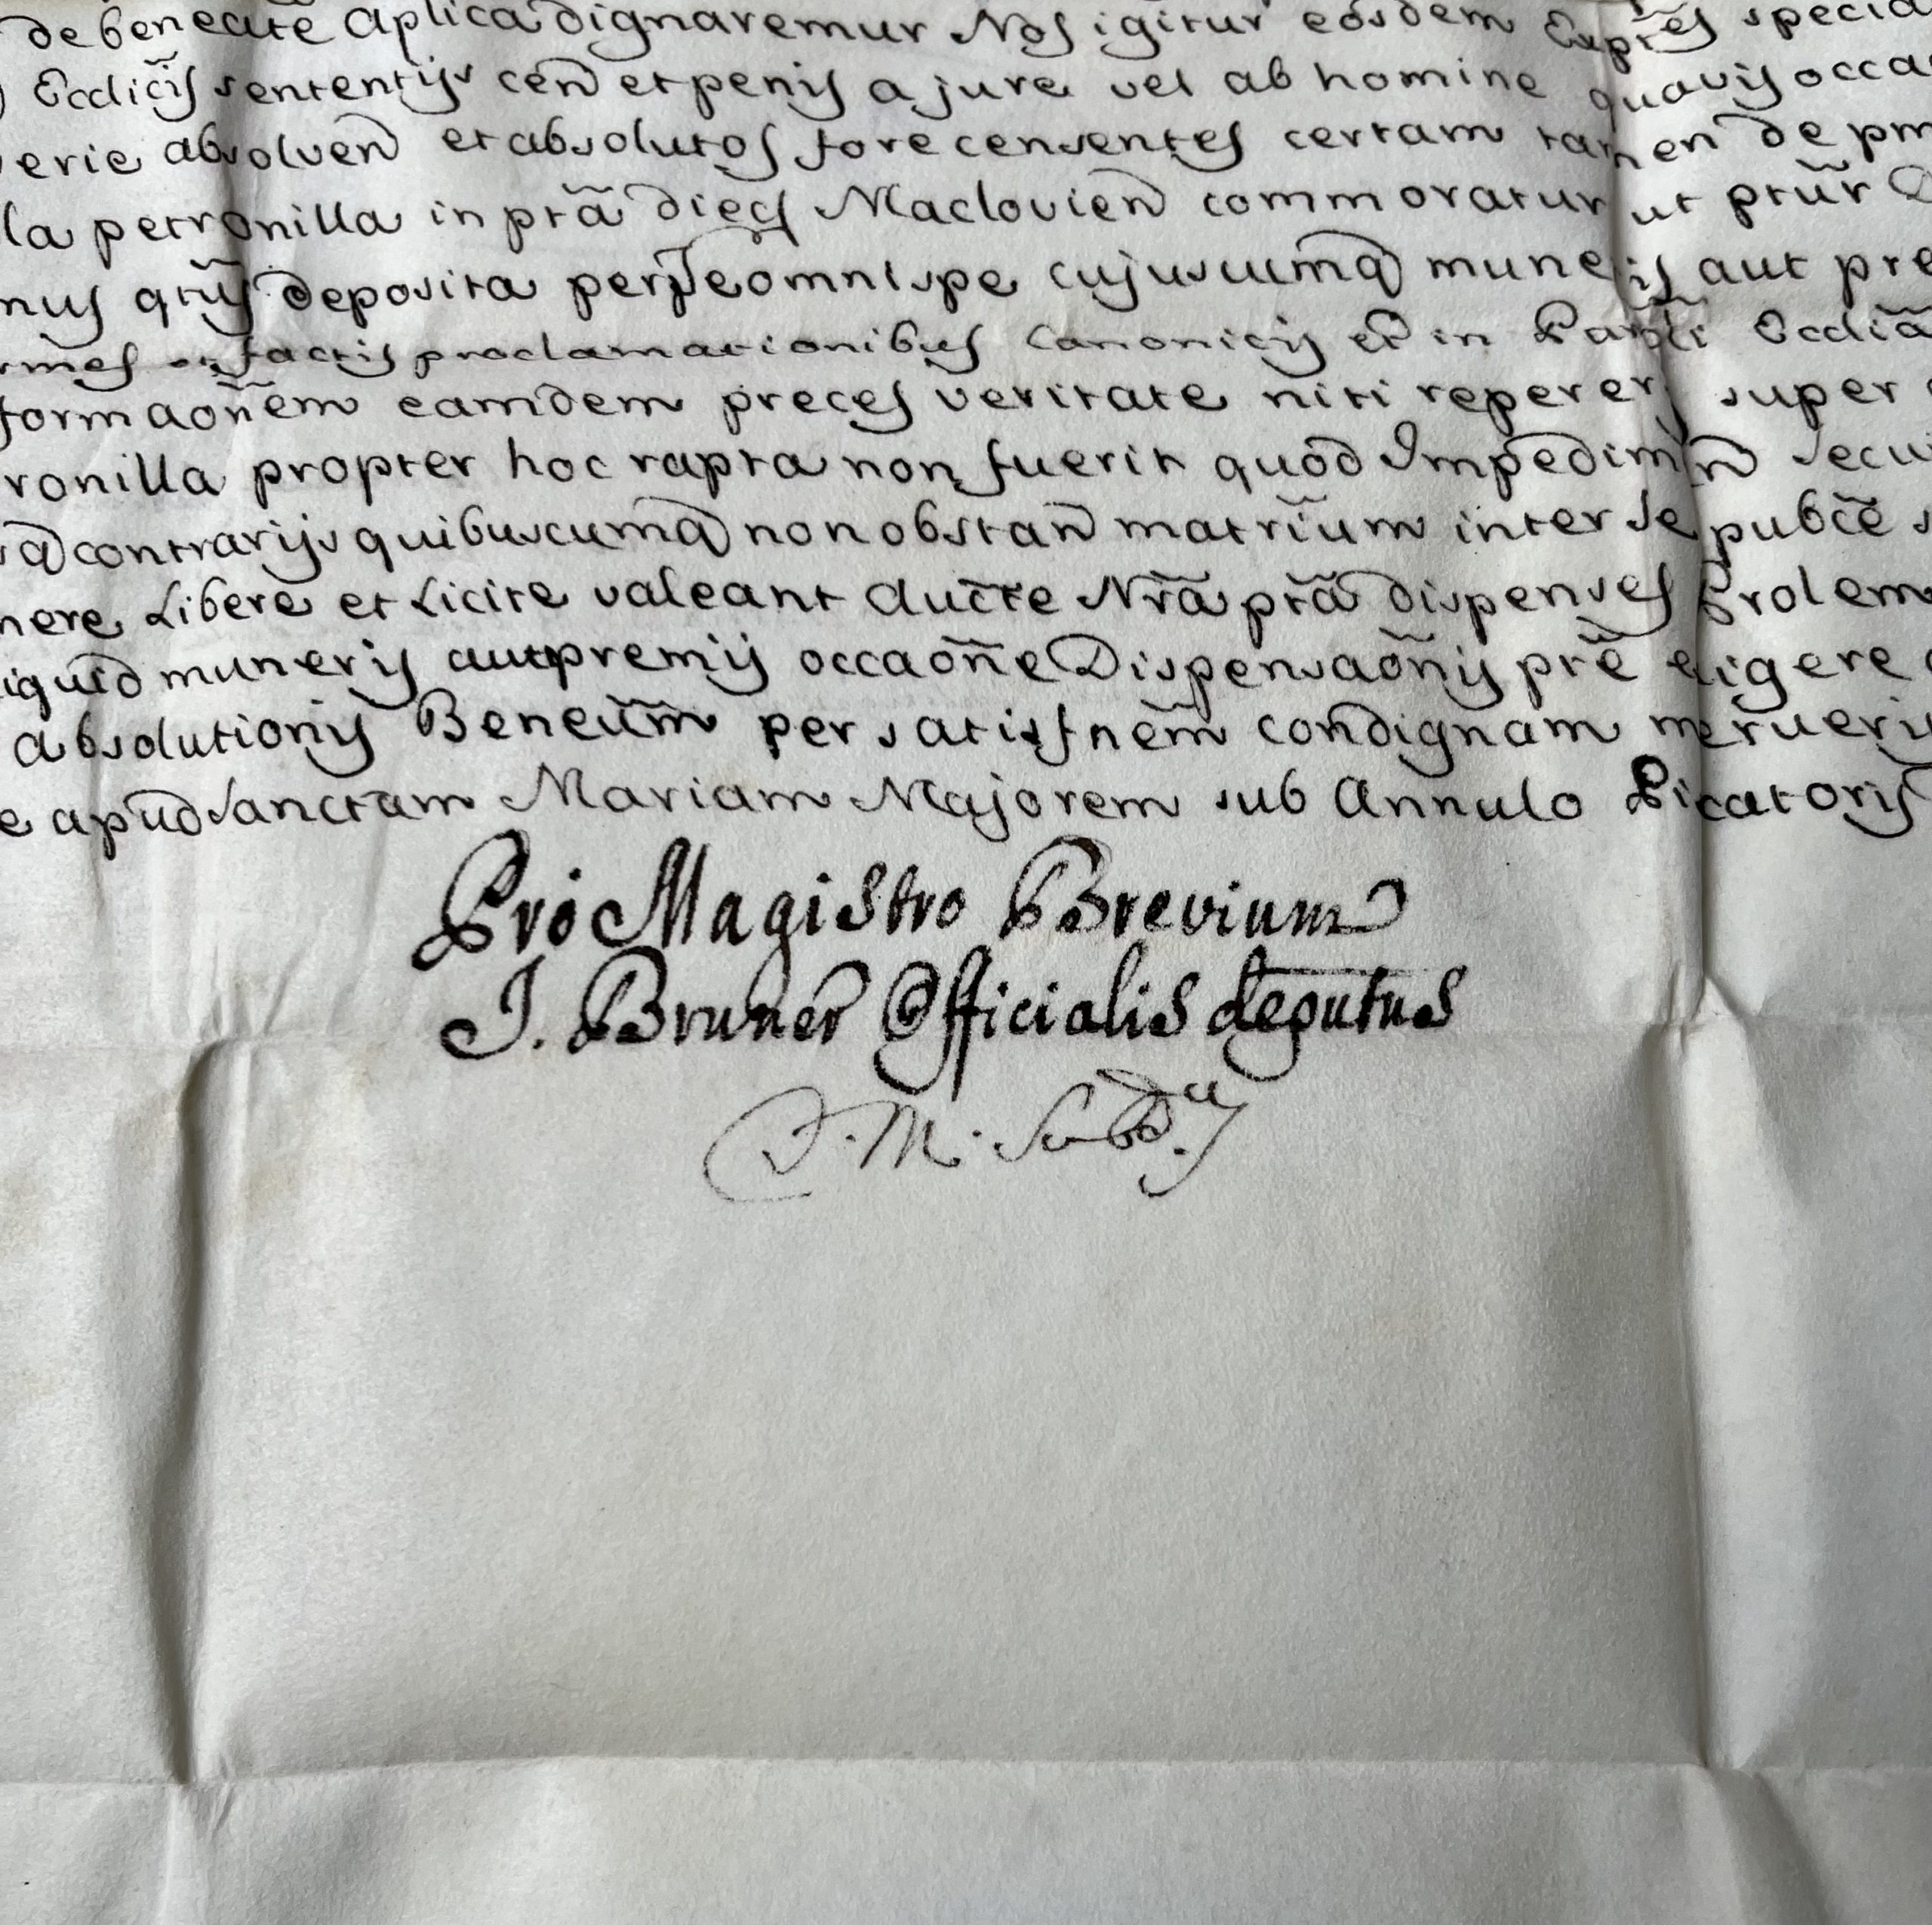 de beneatẽ aplica dignaremur Nos igitur eosdem Expñes specia
Ecclicis sententijs ceñ et penis a jure vel ab homine quavis occa
erie absolveñ et absolutos fore censentes certam tamen de prm
la petronilla in ptã diecs Maclovieñ commoratur ut ptũr
nus deposita omni spe cujuscumq muneris aut pre
rmes factis proclamationibus Canonicis et in Parõli Eccliã
formaoñem eamdem preces veritate niti reperer super
ronilla propter hoc rapta non fuerit quod Impedimñ secu
q contrarijs quibuscumq non obstañ matrĩum inter se pubcẽ
nere Libere et Licite valeant Auctẽ Nrã ptã dispenses Prolem
iquid muneris aut premij occaoñe Dispensaoñis prẽ exigere
absolutionis Beneiũm per satisfnẽm condignam merueri
e apud Sanctam Mariam Majorem sub Annulo Piscatoris
Pro Magistro Brevium
J. Bruner Officialis deputus
J. M.